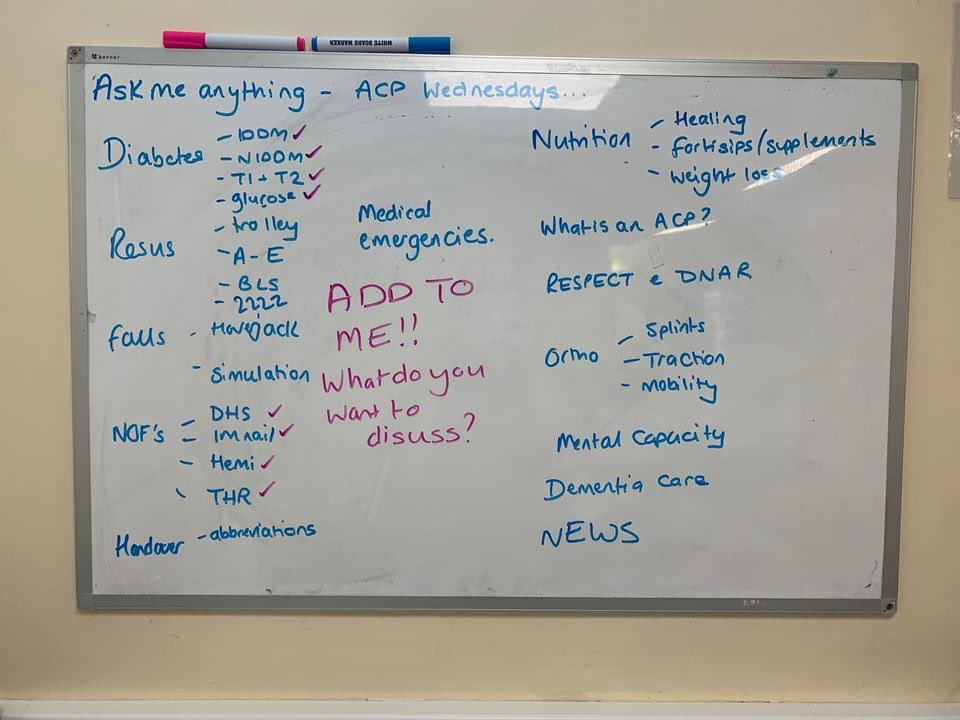 WHITE BOARD MARKER
banner
Ask me anything - ACP Wednesdays...
Diabetes - IDDM ✓
- NIDDM ✓
- T1 + T2 ✓
- glucose ✓
Resus - trolley
- A-E
- BLS
- 2222
falls - Hoverjack
- Simulation
NOF's - DHS ✓
- IM nail ✓
- Hemi ✓
- THR ✓
Handover - abbreviations
Medical
emergencies.
ADD TO
ME!!
What do you
want to
disuss?
Nutrition - Healing
- fortisips/supplements
- weight loss
What is an ACP?
RESPECT & DNAR
Ortho - Splints
- Traction
- mobility
Mental Capacity
Dementia Care
NEWS